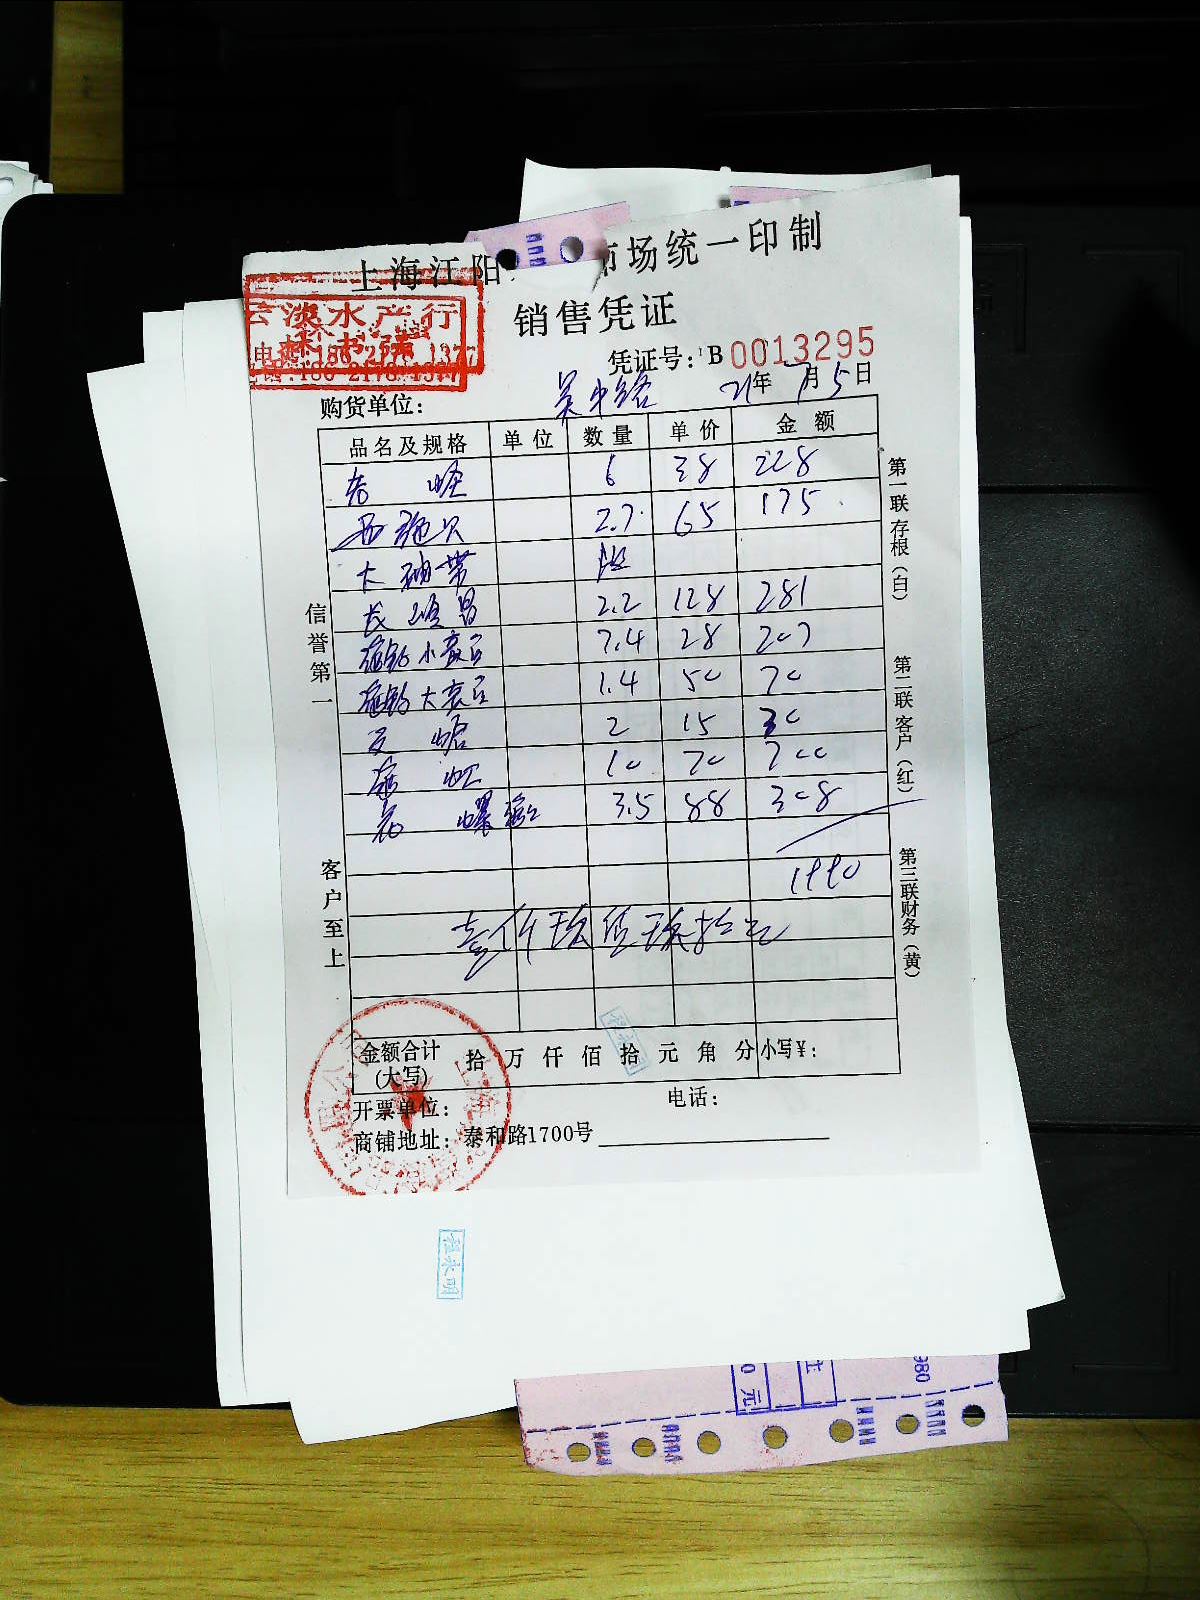 上海江阳
市场统一印制
销售凭证
云淡水产行
凭证号: B 0013295
购货单位: 吴中路 21年7月5日
品名及规格 单位 数量 单价 金额
6 38 228
西施贝 2.7 65 175
大
2.2 128 281
小 7.4 28 207
大 1.4 50 70
2 15 30
10 70 700
花螺 3.5 88 308
1990
壹仟玖佰玖拾元
金额合计
(大写) 拾 万 仟 佰 拾 元 角 分 小写¥:
开票单位: 电话:
商铺地址: 泰和路1700号
信誉第一
客户至上
第一联存根(白)
第二联客户(红)
第三联财务(黄)
程永明
0元
980